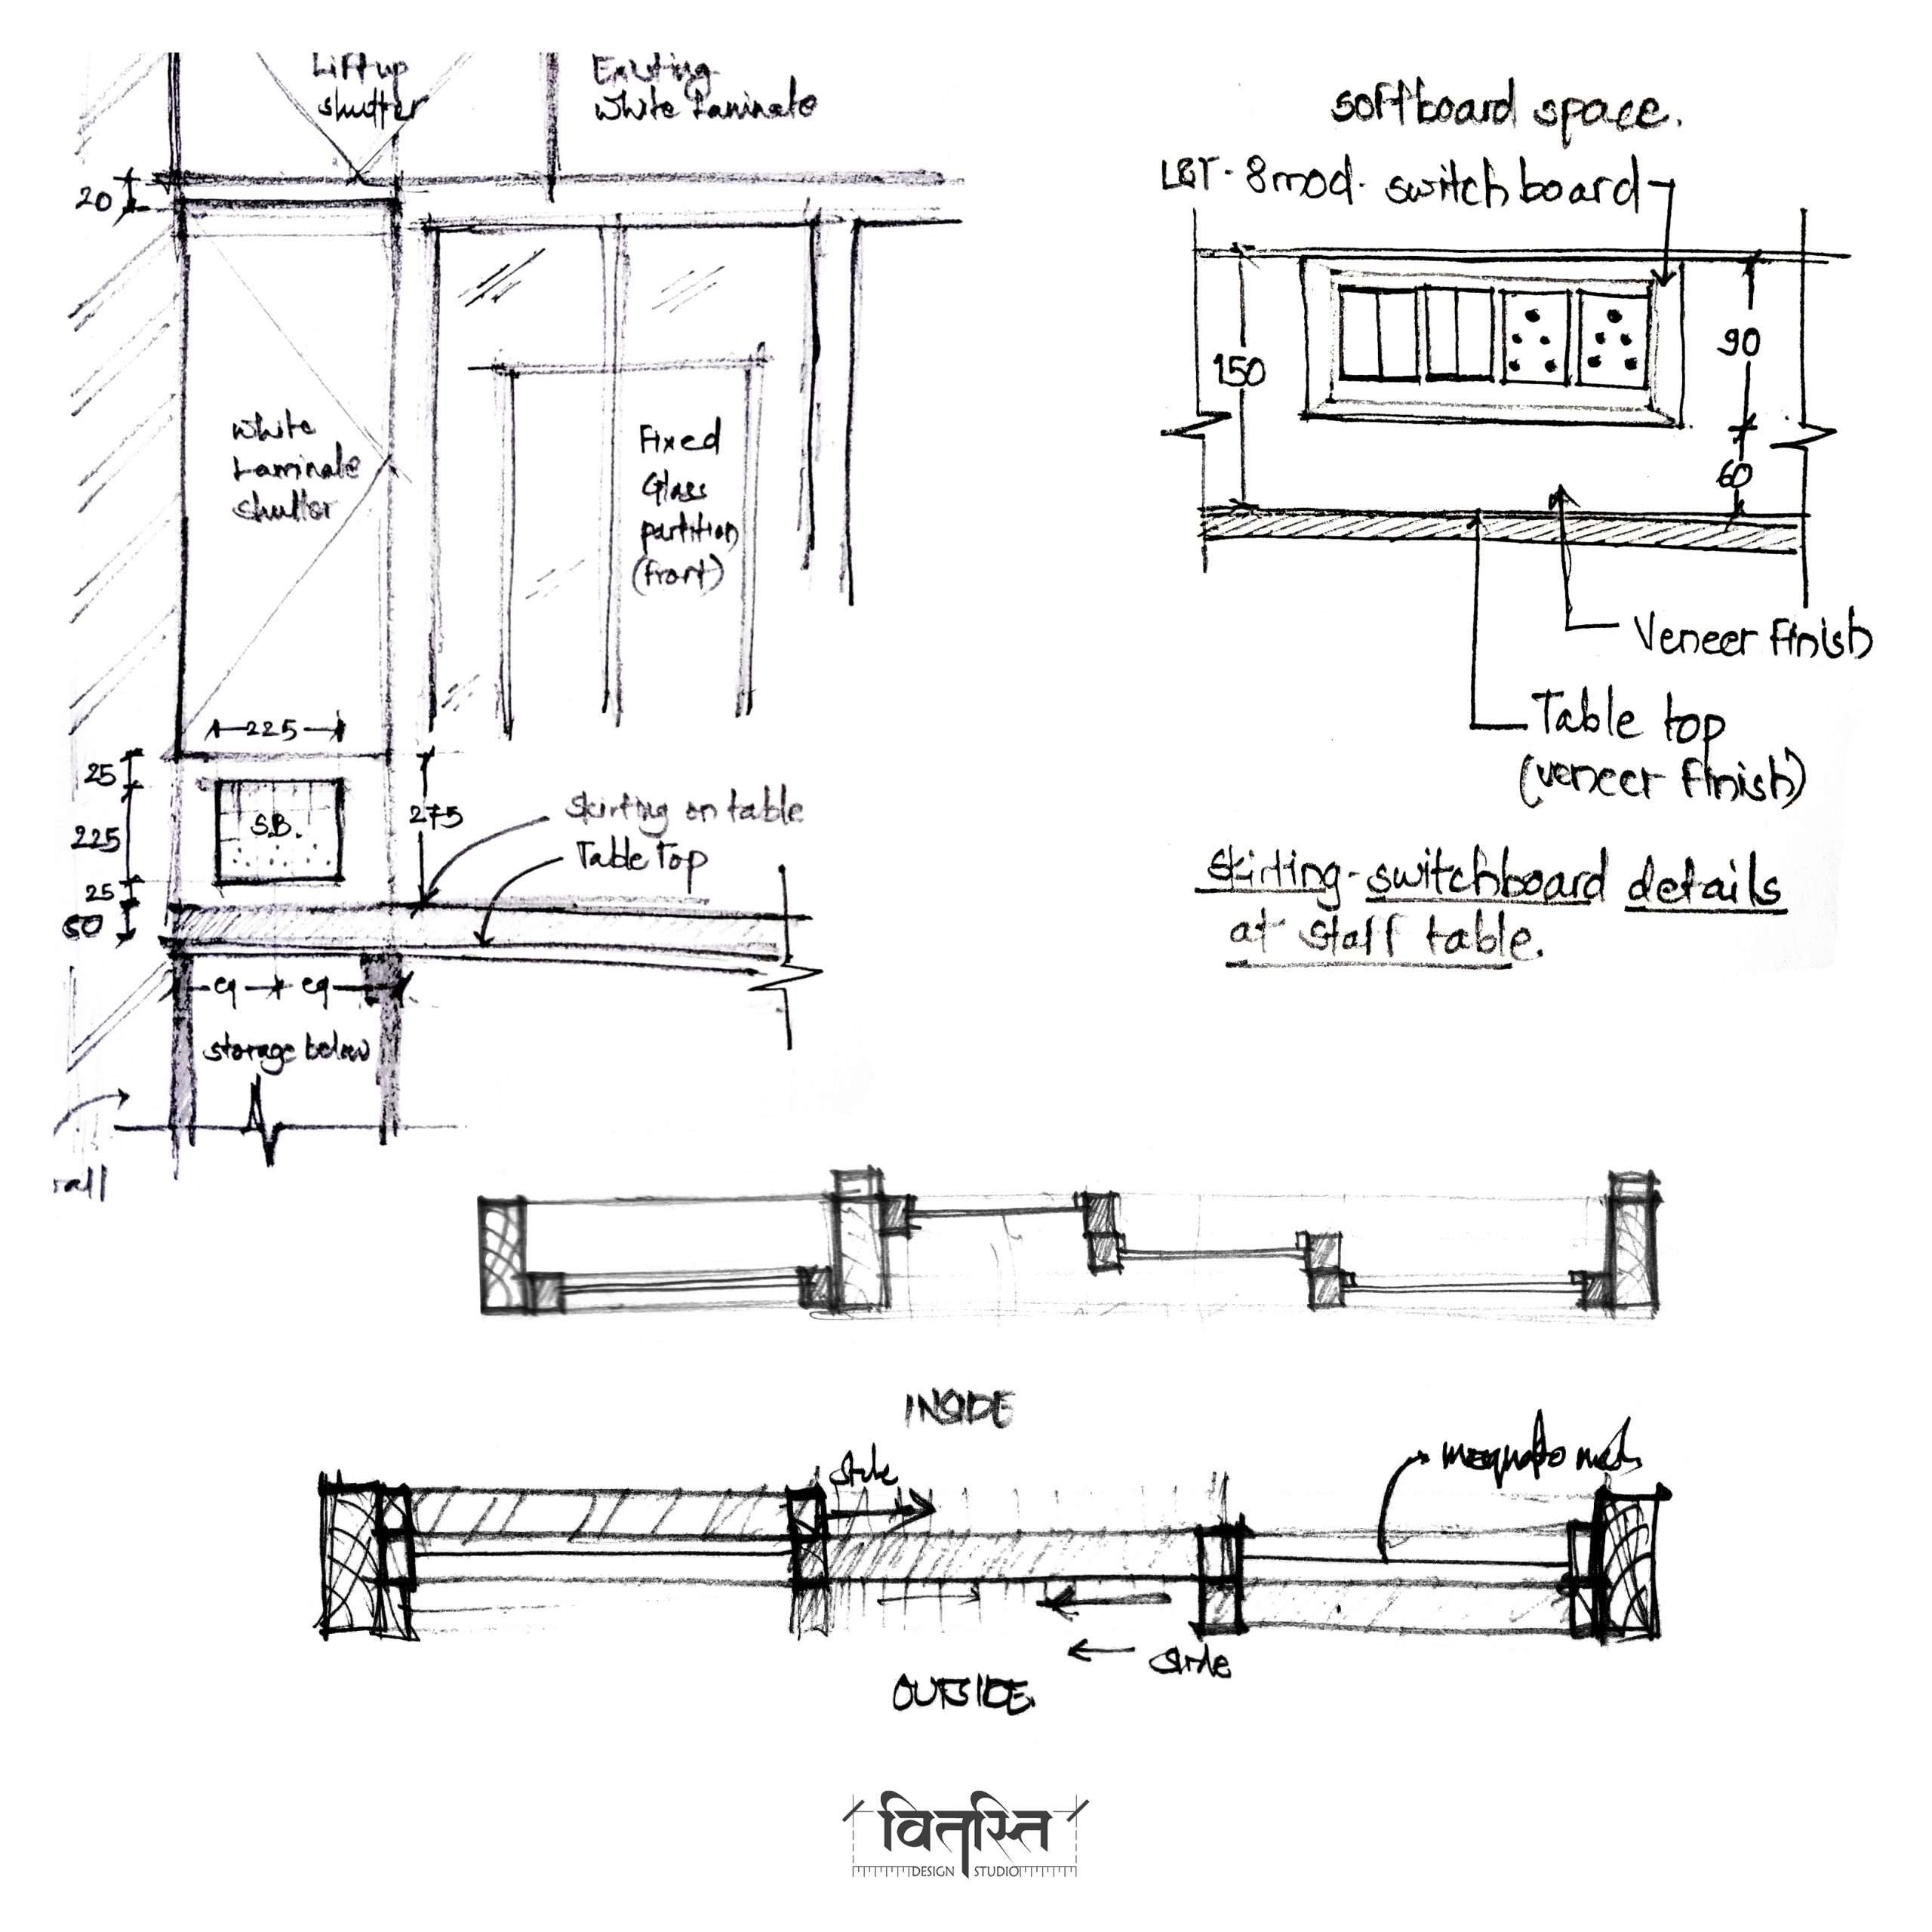 Liftup
shutter
Existing
White Laminate
20
White
Laminate
shutter
Fixed
Glass
partition
(front)
225
25
225
25
50
S.B.
275
Skirting on table
Table Top
eq eq
storage below
softboard space.
8 mod. switch board
150
90
60
Veneer Finish
Table top
(veneer Finish)
Skirting-switchboard details
at staff table.
INSIDE
slide
slide
OUTSIDE
वितस्ति
DESIGN STUDIO